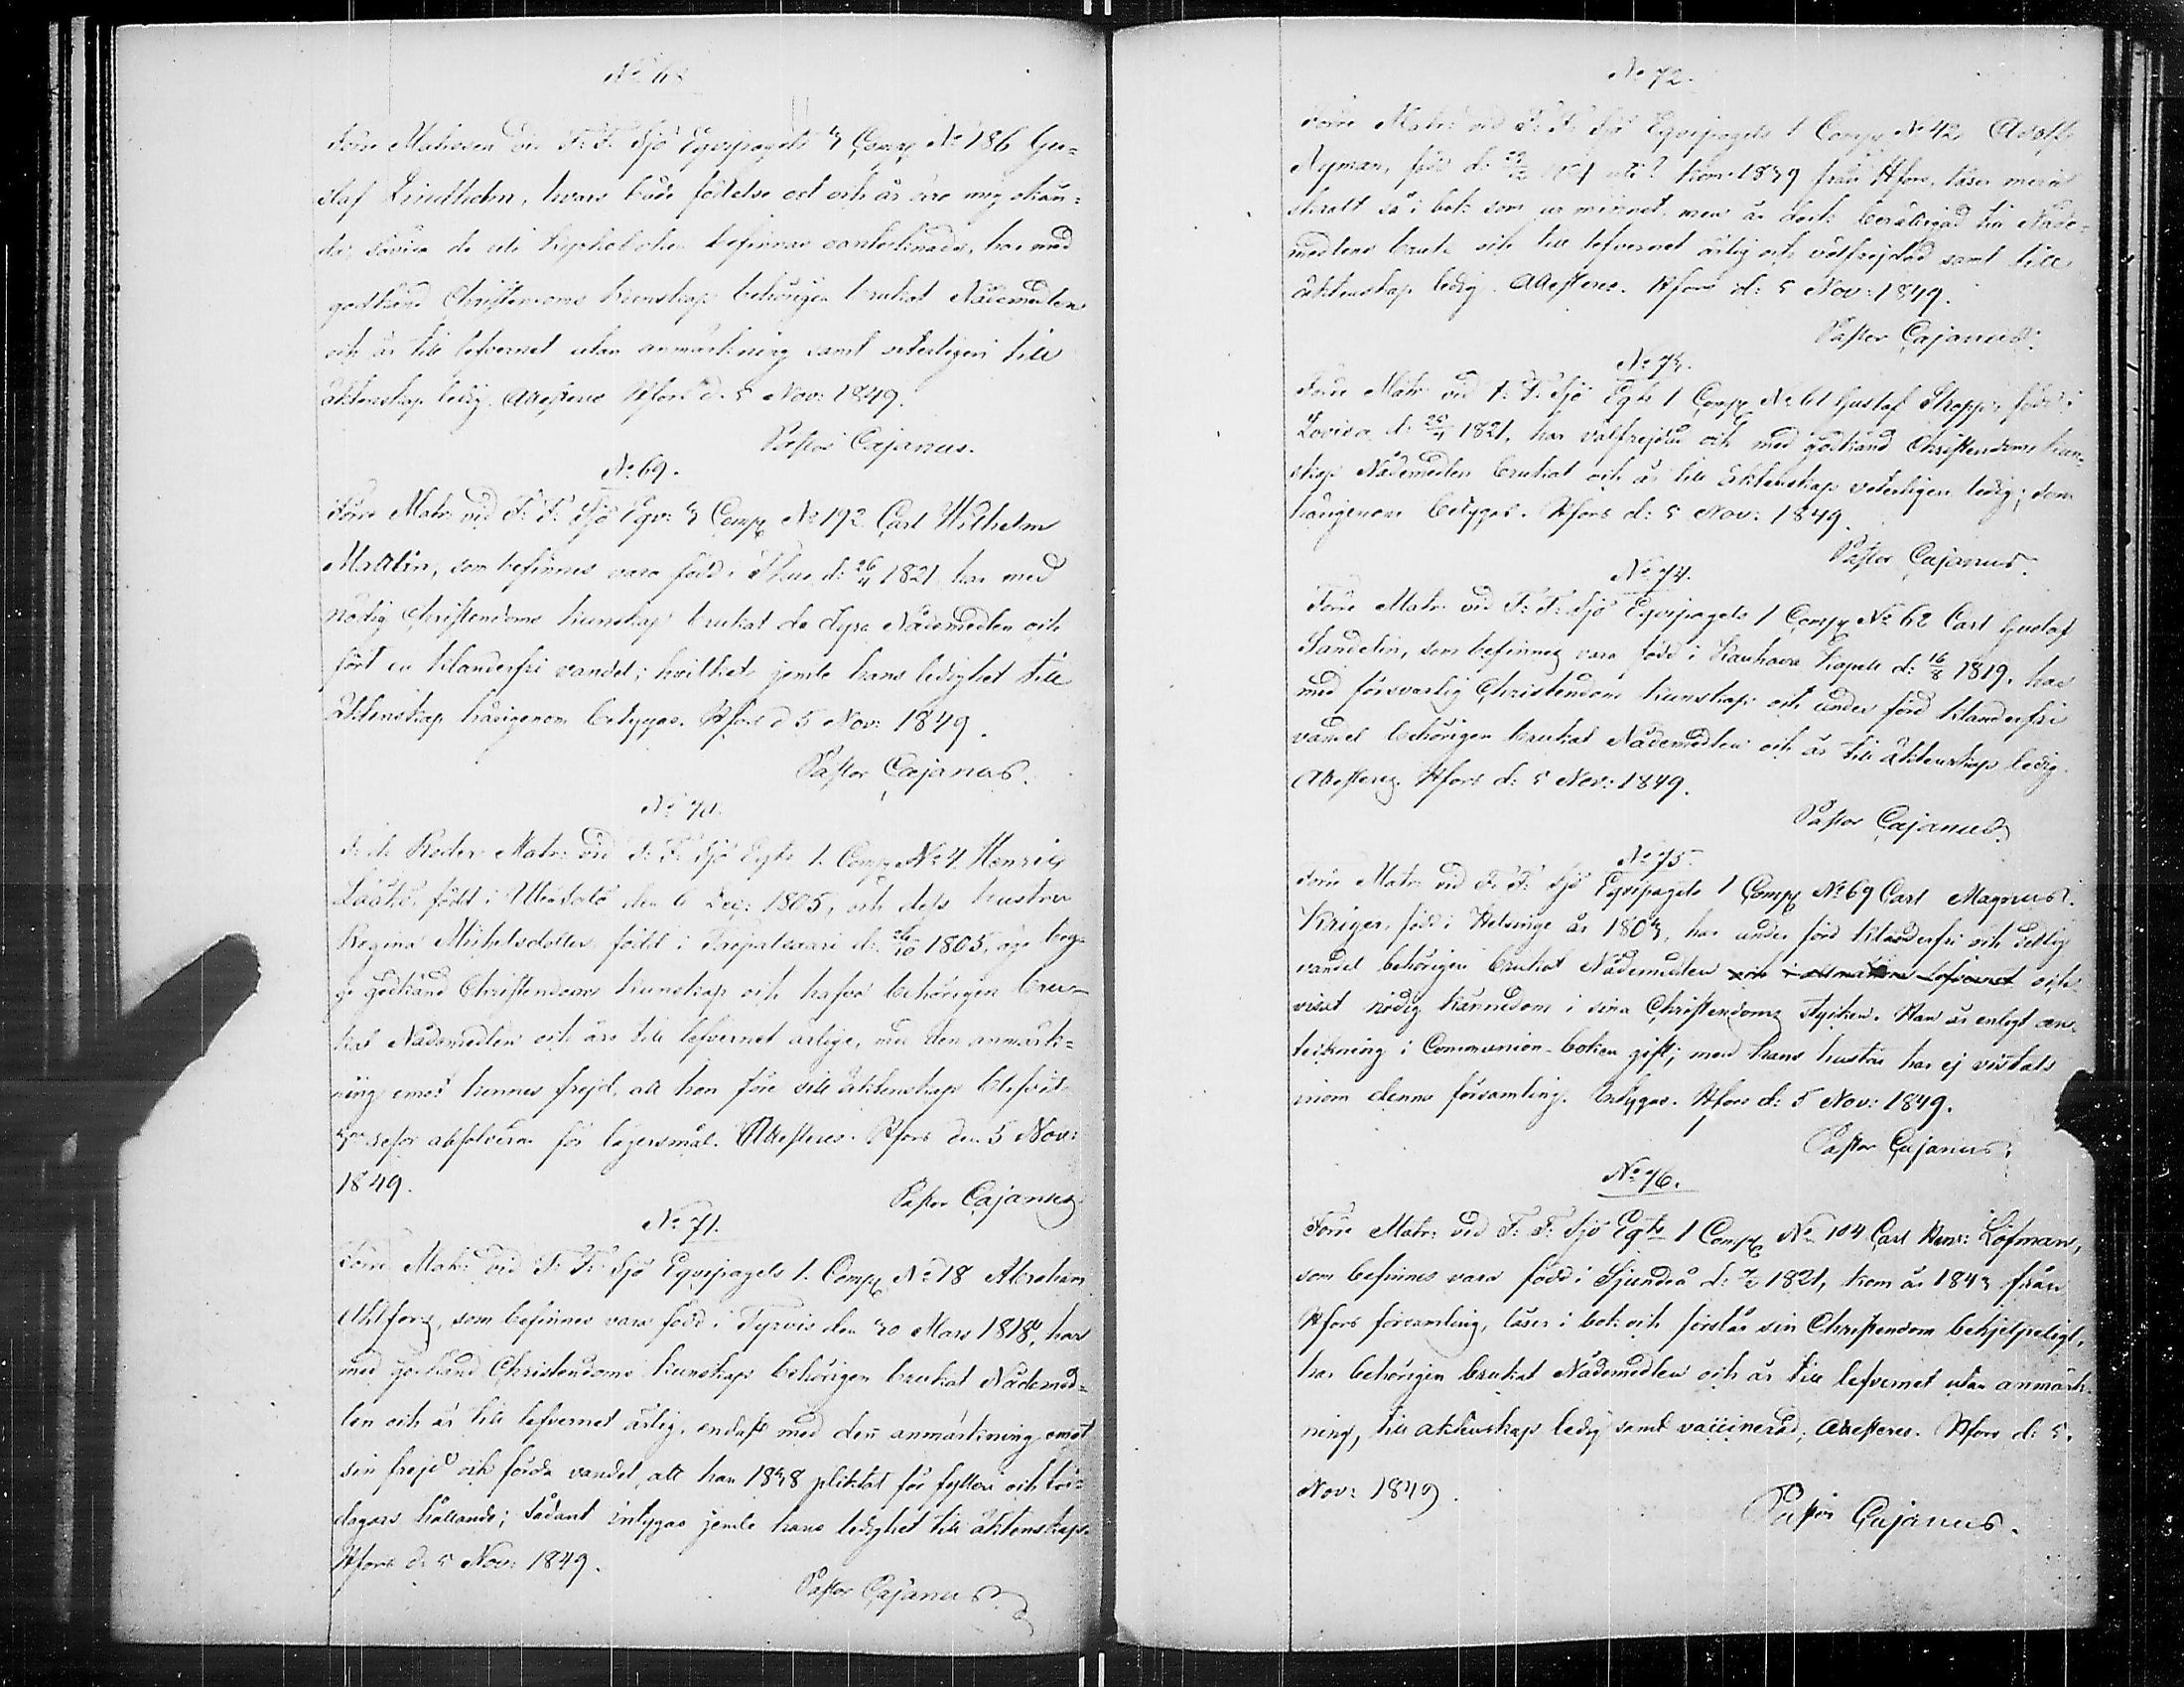 Förre Matrosen vid F: F: Sjö Equipagets 3 Comp. No 186 Gu=
staf Lindholm, hvars både födelse ort och år äro mig okän=
da, såvida de uti Kyrkoboken befinnas oantecknade, har med
godkänd Christendoms kunskap behörigen brukat Nådemedlen
och är till lefvernet utan anmärkning samt veterligen till
äktenskap ledig. Attesteras Hfors d. 5 Nov: 1849.
Pastor Cajanus.
No 69.
Förre Matr: vid F: F: Sjö Eqv: 3 Comp. No 192 Carl Wilhelm
Mattlin, som befinnes vara född i d: 26/4 1821 har med
nödig Christendoms kunskap brukat de dyra Nådemedlen och
fört en klanderfri vandel; hvilket jemte hans ledighet till
äktenskap härigenom betygas. Hfors d 5 Nov: 1849.
Pastor Cajanus.
No 70.
F. d. Roder Matr: vid F: F: Sjö Eqts 1. Comp. No 4 Henric
född i den 6 Dec: 1805, och dess hustru
Regina Michelsdotter född i Taipalsaari d: 1805, äga beg=
ge godkänd Christendoms kunskap och hafva behörigen bru=
kat Nådemedlen och äro till lefvernet ärlige, med den anmärk=
ning emot hennes frejd, att hon före sitt äktenskap blifvit
resor absolverad för lägersmål. Attesteras. Hfors den 5 Nov:
1849.
Pastor Cajanus
No 71.
Förre Matr: vid F: F: Sjö Equipagets 1. Comp. No 18 Abraham
Ahlfors, som befinnes vara född i Tyrvis den 30 Mars 1818, har
med godkänd Christendoms kunskap behörigen brukat Nådemed=
len och är till lefvernet ärlig, endast med den anmärkning emot
sin frejd och förda vandel, att han 1838 pliktat för fylleri och
dagars hållande; Sådant intygas jemte hans ledighet till äktenskap.
Hfors d. 5 Nov: 1849.
Pastor Cajanus
No 72.
Förre Matr: vid F: F: Sjö Equipagets 1 Comp. No 42, Adolf
Nyman, född d: kom 1839 från Hfors, läser
så i bok som ur minnet, men är dock berättigad till Nåde=
medlens bruk och till lefvernet ärlig och välfrejdad samt till
äktenskap ledig. Attesteras. Hfors d: 5 Nov: 1849.
Pastor Cajanus.
No 73.
Förre Matr: vid F: F: Sjö Eqts 1 Comp. No 61 Gustaf Stopp, född i
Lovisa d: 25/4 1821, har välfrejdad och med godkänd Christendoms kun=
skap Nådemedlen brukat och är till äktenskap veterligen ledig; som
härigenom betygas. Hfors d: 5 Nov: 1849.
Pastor Cajanus.
No 74.
Förre Matr: vid F: F: Sjö Equipagets 1 Comp. No 62 Carl Gustaf
Sandelin, som befinnes vara född i Kauhava Kapell d: 16/8 1819, har
med försvarlig Christendoms kunskap och under förd klanderfri
vandel behörigen brukat Nådemedlen och är till äktenskap ledig.
Attesteras. Hfors d: 5 Nov: 1849.
Pastor Cajanus
No 75.
Förre Matr: vid F: F: Sjö Equipagets 1 Comp. No 69 Carl Magnus
Kriger, född i Helsinge år 1803, har under förd klanderfri och
vandel behörigen brukat Nådemedlen och
visat nödig kännedom i sina Christendoms stycken. Han är enligt an=
teckning i Communion-boken gift; men hans hustru har ej vistats
inom denna församling. Intygas. Hfors d: 5 Nov: 1849.
Pastor Cajanus.
No 76.
Förre Matr: vid F: F: Sjö Eqts 1 Comp. No 104 Carl Henr: Löfman,
som befinnes vara född i Sjundeå d: 1821, kom år 1843 från
Hfors församling, läser i bok och förstår sin Christendom behjelpeligt,
har behörigen brukat Nådemedlen och är till lefvernet utan anmärk=
ning, till äktenskap ledig samt vaccinerad, Attesteras. Hfors d: 5.
Nov: 1849.
Pastor Cajanus.